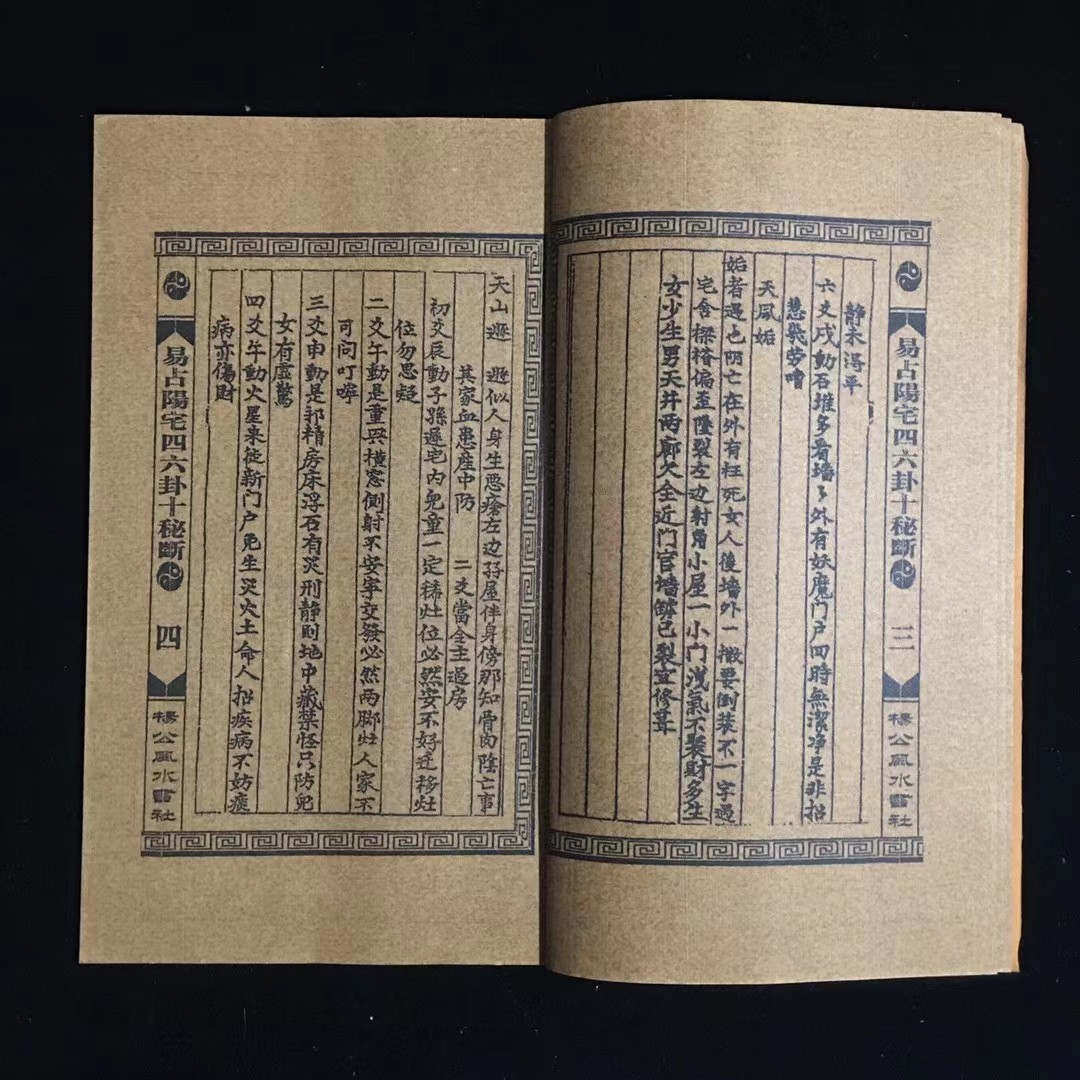 易占陽宅四六卦十秘斷
三
楊公風水書社
静未得平
六爻戌動石堆多看墙之外有妖魔门户四時無潔净是非招
惹幾劳嚕
天風姤
姤者遇也阴亡在外有枉死女人後墙外一撒要倒装不一字過
宅舍樑楮偏歪墜裂左边射角小屋一小门洩氣不聚財多生
女少生男天井两廊欠全近门官墙皱己裂宜修葺
天山遯 遯似人身生惡瘡左边孖屋伴身傍那知骨肉陰亡事
其家血患産中防 二爻當全主過房
初爻辰動子孫遲宅内兒童一定稀灶位必然安不好迁移灶
位勿思疑
二爻午動是重興橫窓側射不安寧交發必然两脚灶人家不
可問叮嚀
三爻申動是邪精房床浮石有災刑静則地中藏禁怪只防兒
女有虛驚
四爻午動火星来徙新门户免生災火土命人招疾病不妨瘟
病亦傷財
易占陽宅四六卦十秘斷
四
楊公風水書社